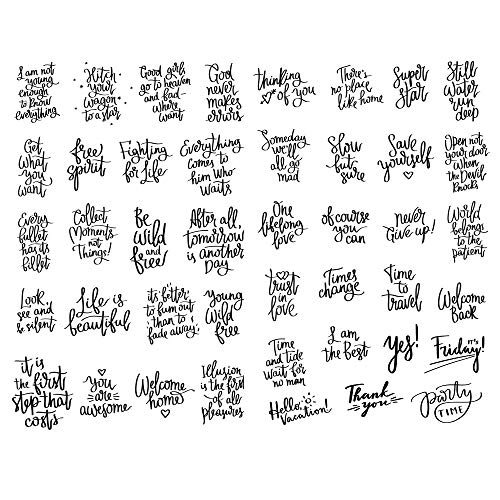 I am not
young
enough to
know
everything
Hitch
your
wagon
to a star
Good girls
go to heaven
and bad-
where
want
God
never
makes
errors
thinking
of you
There's
no place
like home
Super
Star
Still
Water
run
deep
Get
What
you
want
free
spirit
Fighting
for Life
Everything
comes to
him who
waits
Someday
we'll
all go
mad
Slow
but
sure
Save
yourself
Open not
your door
when the
Devil
knocks
Every
bullet
has its
billet
Collect
Moments
not
Things!
Be
Wild
and
free
After all,
tomorrow
is another
Day
One
lifelong
love
of course
you can
never
Give up!
World
belongs
to the
patient
Look,
see and
be silent
Life is
beautiful
it's better
to burn out
than to
fade away
Young
Wild
free
trust
in
love
Times
change
Time
to
travel
Welcome
Back
it is
the first
step that
costs
you
are
awesome
Welcome
home
Illusion
is the first
of all
pleasures
Time
and tide
wait for
no man
I am
the best
Yes!
IT'S
Friday!
Hello,
Vacation!
Thank
you
party
TIME